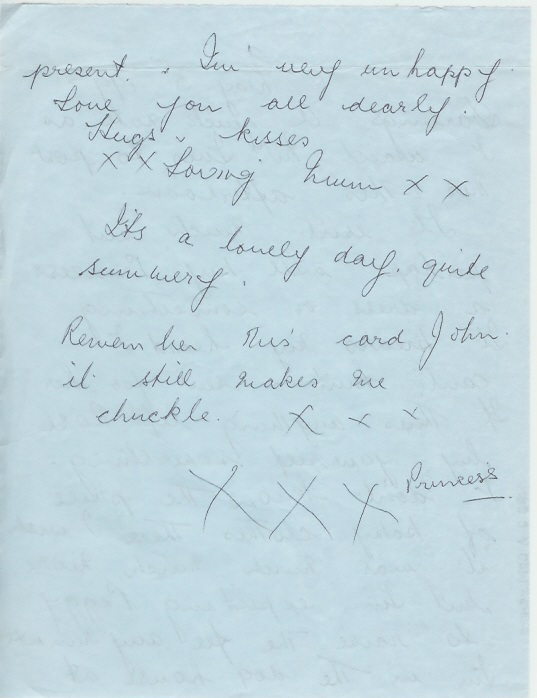 present. & I'm very unhappy.
Love you all dearly.
Hugs & kisses
X X Loving Mum X X
It's a lovely day, quite
summery.
Remember this card John.
it still makes me
chuckle. X X X
X X X Princess